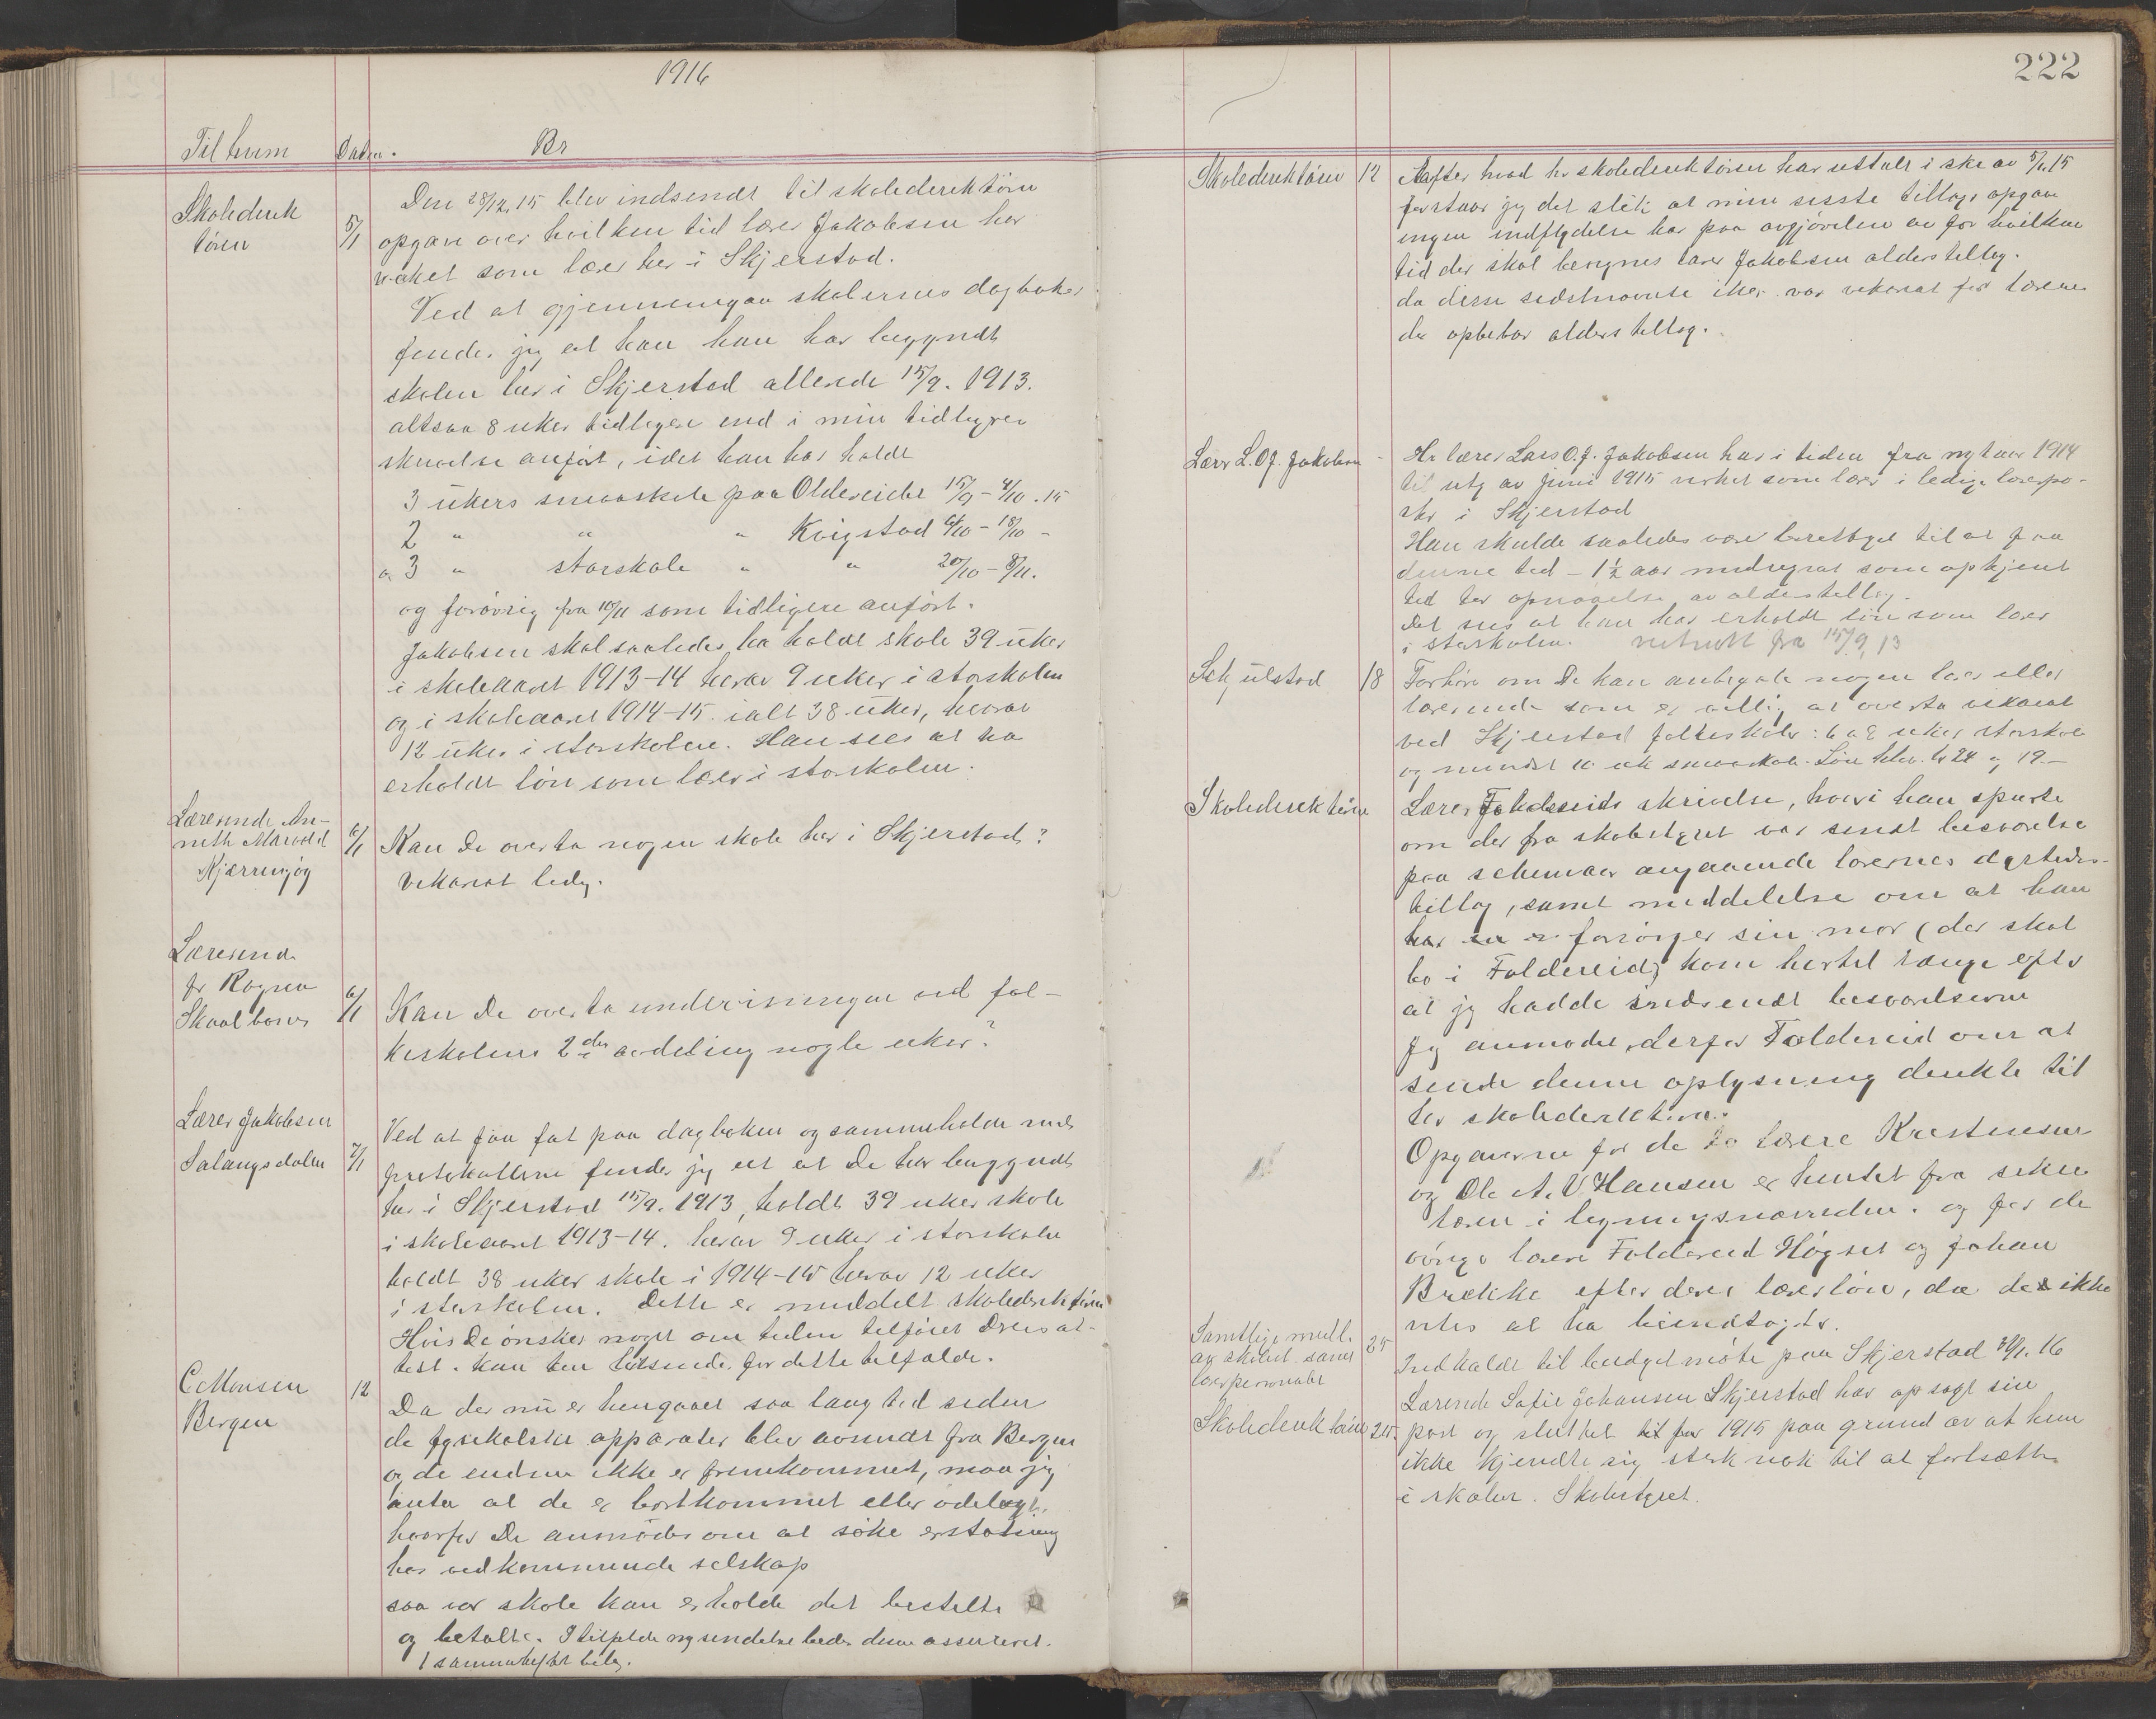 1916
Til hvem Datum. Br
Skoledirek
tören
5/1
Den 28/12.15 blev indsendt til skoledirektören
opgave over hvilken tid lærer Jakobsen har
virket som lærer her i Skjerstad.
Ved at gjennemgaa skolernes dagböker
finder jeg at han har begyndt
skolen her i Skjerstad allerede 15/9. 1913.
altsaa 8 uker tidligere end i min tidligere
skrivelse anfört, idet han har holdt
3 ukers smaaskole paa Oldereidet 15/9 - 4/10 . 15
2 " " " Kvigstad 6/10 - 18/10 -
og 3 " storskole " " 20/10 - 8/11.
og forövrig fra 10/11 som tidligere anfört.
Jakobsen skal saaledes ha holdt skole 39 uker
i skoleaaret 1913-14 herav 9 uker i storskolen
og i skoleaaret 1914-15 ialt 38 uker, hvorav
12 uker i storskolen. Han sees at ha
erholdt lön som lærer i storskolen.
Lærerinde An-
neth Marvold
Kjærringöy
6/1
Kan De overta nogen skole her i Skjerstad?
Vikariat ledig.
Lærerinde
fr Ragna
Skaalbones
6/1
Kan De overta undervisningen ved fol-
keskolens 2den avdeling nogle uker?
Lærer Jakobsen
Salangsdalen
7/1
Ved at faa fat paa dagboken og sammenholde med
protokollene finder jeg ut at De har begyndt
her i Skjerstad 15/9. 1913, holdt 39 uker skole
i skoleaaret 1913-14. herav 9 uker i storskolen
holdt 38 uker skole i 1914-15 herav 12 uker
i storskolen. Dette er meddelt skoledirektören
Hvis De önsker noget om tiden tilföiet Deres at-
test. kan den tilsendes for dette tilfælde.
C Monsen
Bergen
12
Da der nu er hengaaet saa lang tid siden
de fysikalske apparater blev avsendt fra Bergen
og de endnu ikke er fremkommet, maa jeg
anta at de er bortkommet eller ödelagt,
hvorfor De anmodes om at söke erstatning
hos vedkommende selskap
saa vor skole kan erholde det bestilte
og betalte. I tilfælde ny sendelse bedes denne assureret.
1 sammenheftet bilag.
222
Skoledirektören 12
Efter hvad hr skoledirektören har uttalt i skr av 5/1.15
forstaar jeg det slik at min sisste tillægs opgave
ingen indflydelse har paa avgjörelsen av for hvilken
tid der skal beregnes lærer Jakobsen alderstillæg.
da disse sidstnævnte ikke var vikariat for lærere
der oppebar alderstillæg.
Lærer L. O. J. Jakobsen -
Hr lærer Lars O. J. Jakobsen har i tiden fra nytaar 1914
til utg av juni 1915 virket som lærer i ledige lærerpo-
ster i Skjerstad
Han skulde saaledes være berettiget til at faa
denne tid - 1½ aar medregnet som optjent
tid for opnaaelse av alderstillæg.
Det sees at han har erholdt lön som lærer
i storskolen. rettet fra 15/9, 13
Skjulstad 18
Forhöre om De kan anbefale nogen lærer eller
lærerinde som er villig at overta vikariat
ved Skjerstad folkeskoler: 6 a 8 uker storskole
og mindst 10 uk smaaskole. Lön kr. 24 og 19.-
Skoledirektören
Lærer Foldereids skrivelse, hvori han spurte
om der fra skolestyret var sendt besvarelse
paa schemaer angaaende lærernes dyrtids-
tillæg, samt meddelelse om at han
forsörger sin mor (der skal
bo i Foldereid) kom hertil længe efter
at jeg hadde indsendt besvarelserne
Jeg anmodet derfor Foldereid om at
sende denne oplysning direkte til
hr skoledirektören.
Opgaverne for de to lærere Kristensen
og Ole A. V Hansen er hentet fra sekre
tæren i ligningsnævnden. og for de
övrige lærere Foldereid Högset og Johan
Brække efter deres lærerlön, da de ikke
vites at ha biindtægter.
Samtlige medl.
av skolest. samt
lærerpersonalet
25
Indkaldt til budgetmöte paa Skjerstad 29/1. 16
Skoledirektören 25.
Lærerinde Sofie Johansen Skjerstad har opsagt sin
post og sluttet för 1915 paa grund av at hun
ikke kjendte sig sterk nok til at fortsætte
i skolen. Skolestyret.